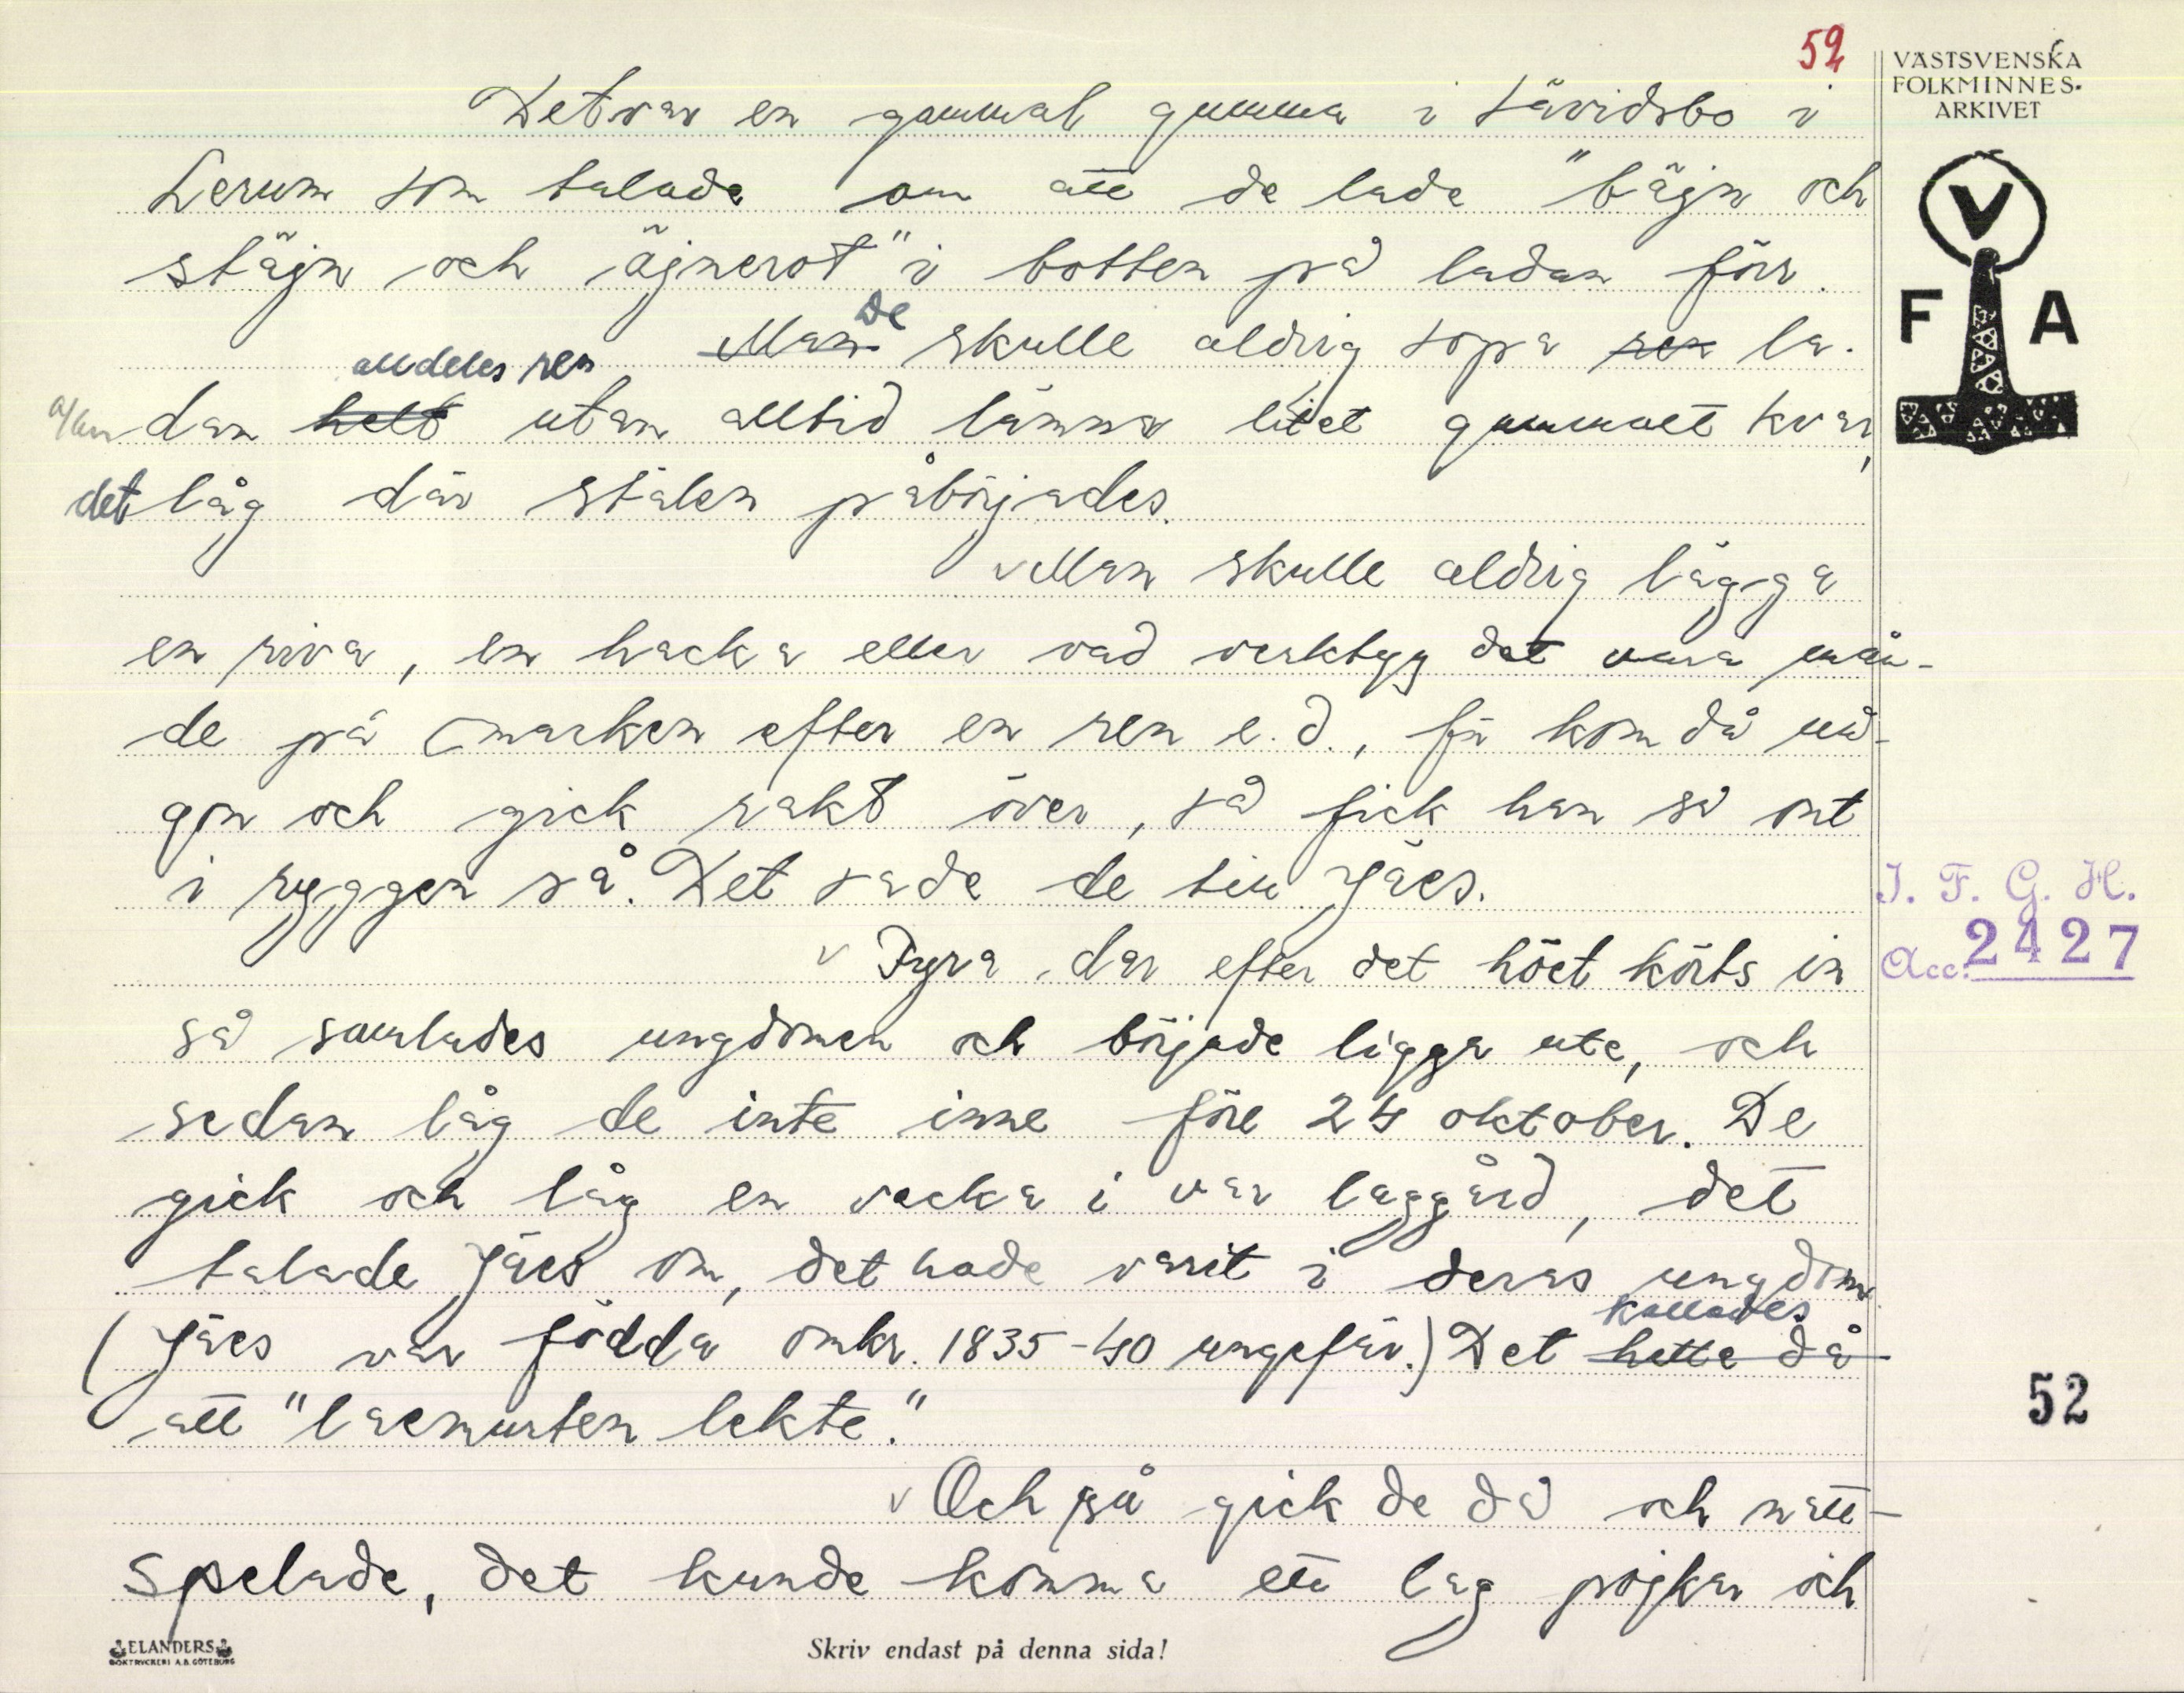 52
VÄSTSVENSKA
FOLKMINNES-
ARKIVET
V
F A
Det var en gammal gumma i Sävidsbo i
Lerum som talade om att de lade "bäjn och
stäjn och äjnerot" i botten på ladan förr.
De
Man skulle aldrig sopa ren la-
alldeles ren
dan helt utan alltid lämna litet gammalt kvar,
det låg där stålen påbörjades.
Man skulle aldrig lägga
en riva, en hacka eller vad verktyg det vara mån-
de på marken efter en ren e.d., för kom då nå-
gon och gick rakt över, så fick han så ont
i ryggen så. Det sade de till Jäes.
v Fyra dar efter det höet körts in
så samlades ungdomen och började ligga ute, och
sedan låg de inte inne före 24 oktober. De
gick och låg en vecka i var laggård, det
talade Jäes om, det hade varit i deras ungdom
kallades
(Jäes var födda omkr. 1835-40 ungefär.) Det hette då
att "laemusten lekte."
v Och så gick de då och natt-
spelade, det kunde komma ett lag pojkar och
I. F. G. H.
Acc: 2427
52
ELANDERS
BOKTRYCKERI A.B. GÖTEBORG
Skriv endast på denna sida!